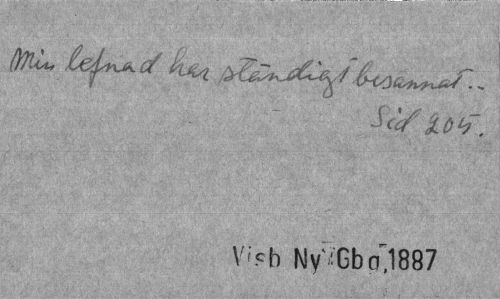 Min lefnad har ständigt besannat..
Sid 205.
Visb Ny Gbg, 1887